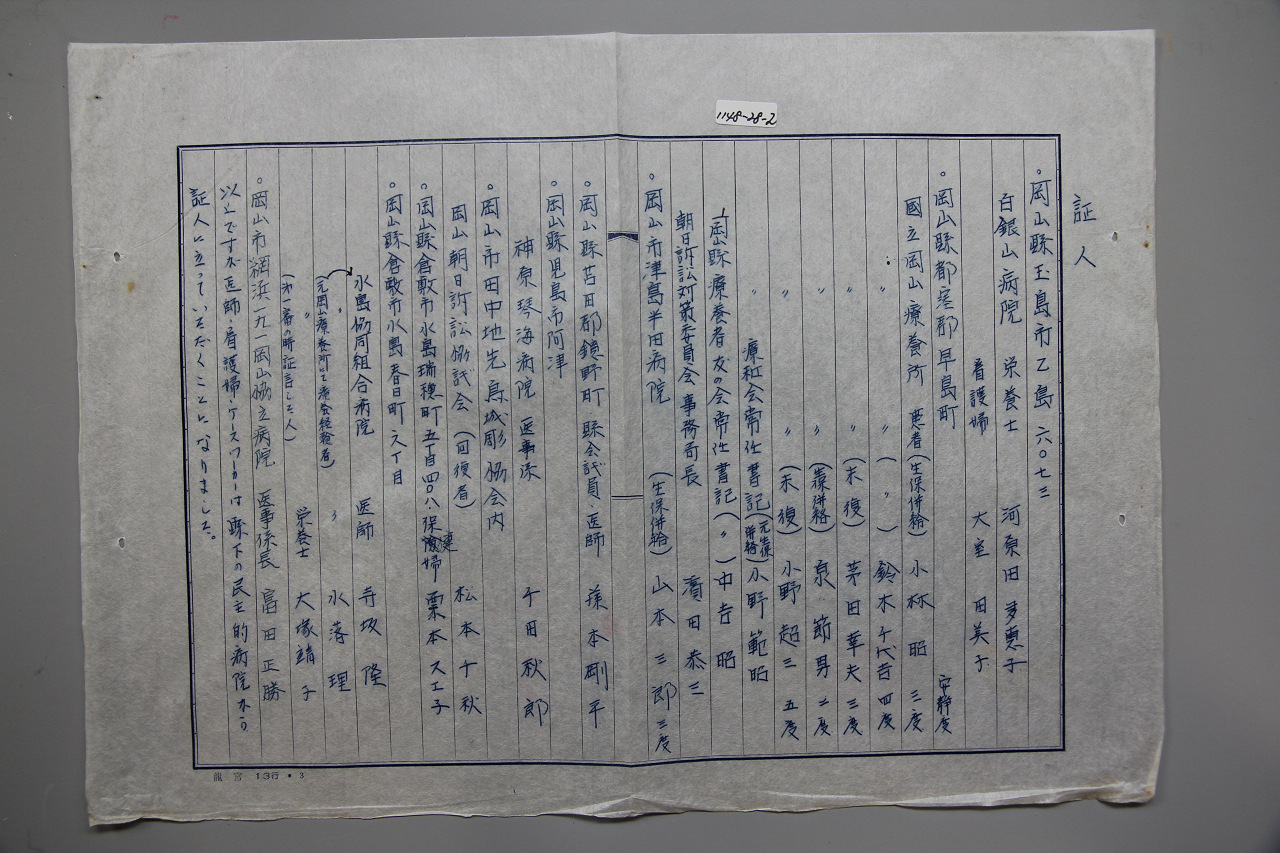 1148-28-2
証人
。岡山縣玉島市乙島 六〇七三
白銀山病院 栄養士 河原田多恵子
看護婦 大室田美子
。岡山縣都窪郡早島町 安静度
國立岡山療養所 患者(生保併給)小林昭 三度
〃 〃 (〃)鈴木千代吉 四度
〃 〃 (未復)茅田幸夫 三度
〃 〃 (生保併給)泉節男 二度
〃 〃 (未復)小野超三 五度
〃 療社会常任書記(元生保併給)小野範昭
岡山縣療養者友の会常任書記(〃)中吉昭
朝日訴訟対策委員会事務局長 濱田恭三
。岡山市津島半田病院 (生保併給)山本三郎 三度
。岡山縣苫田郡鏡野町 縣会議員・医師 孫本剛平
。岡山縣児島市阿津
神原琴海病院 医事係 千田秋郎
。岡山市田中地先烏城彫協会内
岡山朝日訴訟協議会(回復者) 松本千秋
。岡山縣倉敷市水島瑞穂町五丁目四〇八・保健婦 栗本スエ子
。岡山縣倉敷市水島春日町六丁目
水島協同組合病院 医師 寺坂隆
〃 〃 水落理
(元岡山療養所にて療養経験者)
〃 栄養士 大塚靖子
(第一審の時証言した人)
。岡山市網浜一九一岡山協立病院 医事係長 冨田正勝
以上ですが医師・看護婦・ケースワーカーは縣下の民主的病院から
証人に立っていただくことになりました。
龍宮 13行・3